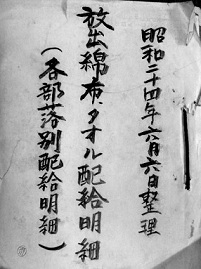 昭和二十四年六月六日整理
放出綿布、タオル配給明細
(各部落別配給明細)